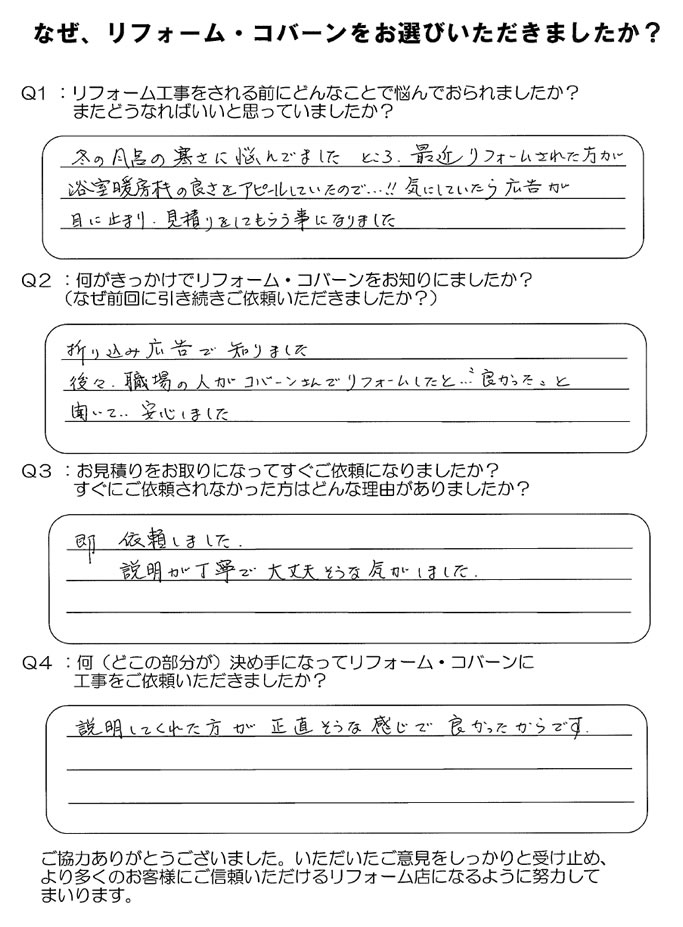 なぜ、リフォーム・コバーンをお選びいただきましたか？
Q1 ：リフォーム工事をされる前にどんなことで悩んでおられましたか？
またどうなればいいと思っていましたか？
冬の風呂の寒さに悩んでました ところ、最近リフォームされた方が
浴室暖房機の良さをアピールしていたので…!! 気にしていたら広告が
目に止まり、見積りをしてもらう事になりました
Q2 ：何がきっかけでリフォーム・コバーンをお知りにましたか？
（なぜ前回に引き続きご依頼いただきましたか？）
折り込み広告で知りました
後々、職場の人がコバーンさんでリフォームしたと…“良かった”と
聞いて.. 安心しました
Q3 ：お見積りをお取りになってすぐご依頼になりましたか？
すぐにご依頼されなかった方はどんな理由がありましたか？
即 依頼しました.
説明が丁寧で大丈夫そうな気がしました.
Q4 ：何（どこの部分が）決め手になってリフォーム・コバーンに
工事をご依頼いただきましたか？
説明してくれた方が正直そうな感じで良かったからです.
ご協力ありがとうございました。いただいたご意見をしっかりと受け止め、
より多くのお客様にご信頼いただけるリフォーム店になるように努力して
まいります。